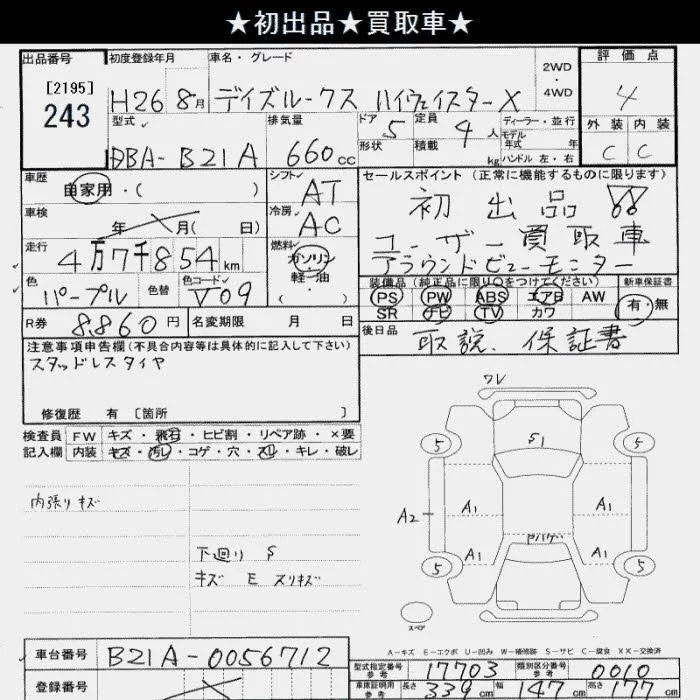 ★初出品★買取車★
出品番号 初度登録年月 車名・グレード 2WD・4WD 評価点
[2195]
243
H26 8月 デイズルークス ハイウェイスターX 4
型式 排気量 ドア 定員 ディーラー・並行 外装 内装
DBA-B21A 660cc 5 4人 モデル年式 年 C C
形状 積載 kg ハンドル 左・右
車歴 自家用・( ) シフト AT セールスポイント (正常に機能するものに限ります)
車検 年 月( 日) 冷房 AC 初出品
走行 4万7千854km 燃料 ガソリン 軽・油 ( ) ユーザー買取車
アラウンドビューモニター
色 パープル 色替 色コード V09 装備品(純正品に限り○をつけてください) 新車保証書
PS PW ABS エアB AW 有・無
SR ナビ TV カワ
R券 8,860円 名変期限 月 日 後日品 取説、保証書
注意事項申告欄(不具合内容等は具体的に記入して下さい)
スタッドレスタイヤ
修復歴 有 [箇所 ]
検査員 FW キズ・飛石・ヒビ割・リペア跡・×要
記入欄 内装 キズ・汚レ・コゲ・穴・スレ・キレ・破レ
内張りキズ
下回り S
キズ E スリキズ
ワレ
5 S1 5
A2 A1 A1
A1 A1
5 5
スペア
A-キズ E-エクボ U-凹み W-補修跡 S-サビ C-腐食 XX-交換済
車台番号 B21A-0056712 型式指定番号 参考 17703 類別区分番号 参考 0010
登録番号 車庫証明用 参考 長さ 339cm 幅 147cm 高さ 177cm